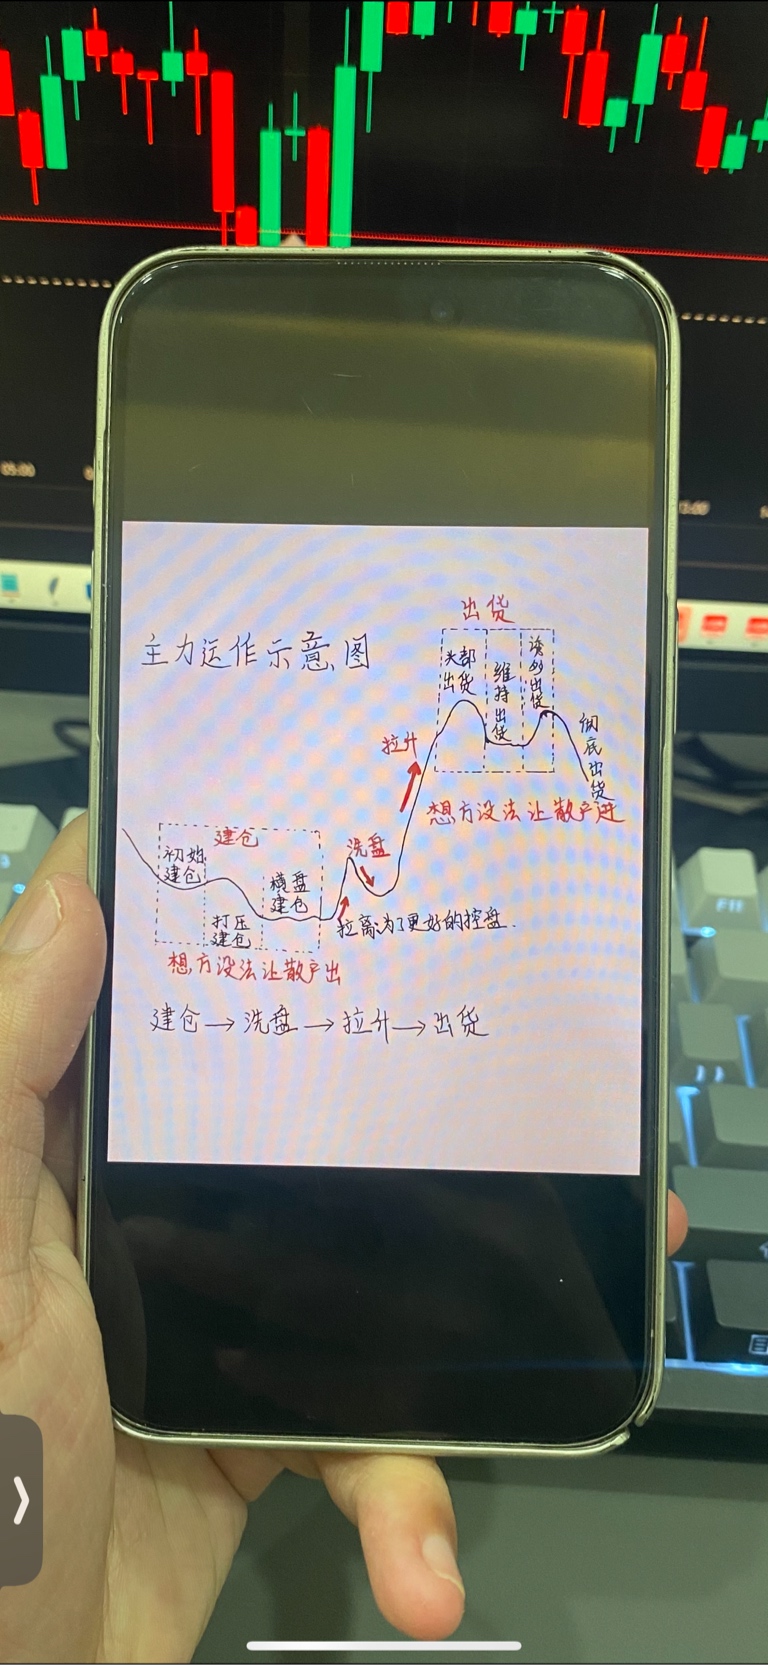 出货
主力运作示意图
头部出货
维持出货
诱多出货
彻底出货
拉升
想方设法让散户进
建仓
洗盘
初始建仓
横盘建仓
打压建仓
拉离为了更好的控盘.
想方设法让散户出
建仓→洗盘→拉升→出货
05:00
F11